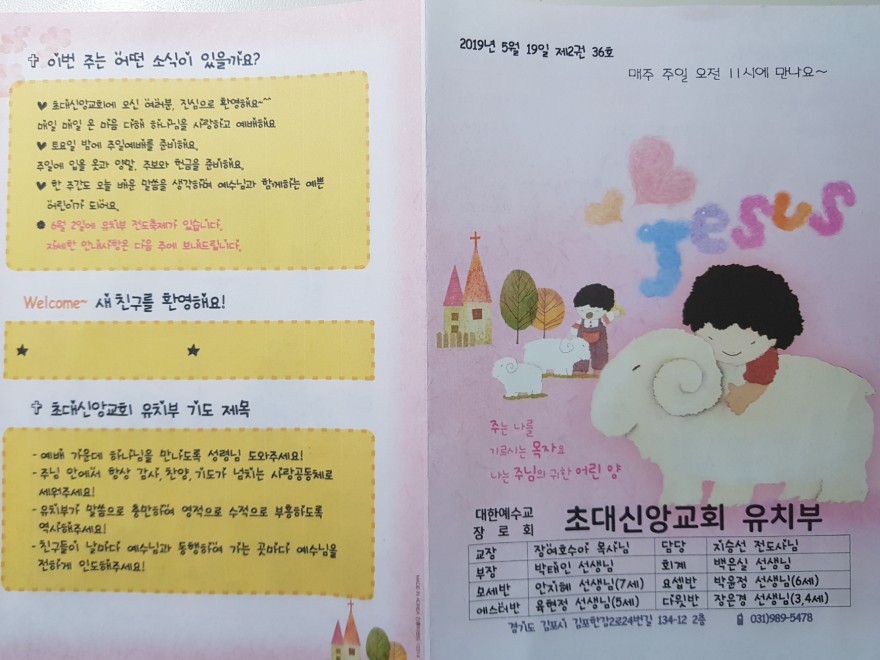 ✝ 이번 주는 어떤 소식이 있을까요?
♥ 초대신앙교회에 오신 여러분, 진심으로 환영해요~^^
매일 매일 온 마음 다해 하나님을 사랑하고 예배해요
♥ 토요일 밤에 주일예배를 준비해요.
주일에 입을 옷과 양말, 주보와 헌금을 준비해요.
♥ 한 주간도 오늘 배운 말씀을 생각하며 예수님과 함께하는 예쁜
어린이가 되어요.
● 6월 2일에 유치부 전도축제가 있습니다.
자세한 안내사항은 다음 주에 보내드립니다.
Welcome~ 새 친구를 환영해요!
★ ★
✝ 초대신앙교회 유치부 기도 제목
- 예배 가운데 하나님을 만나도록 성령님 도와주세요!
- 주님 안에서 항상 감사, 찬양, 기도가 넘치는 사랑공동체로
세워주세요!
- 유치부가 말씀으로 충만하여 영적으로 수적으로 부흥하도록
역사해주세요!
- 친구들이 날마다 예수님과 동행하며 가는 곳마다 예수님을
전하게 인도해주세요!
2019년 5월 19일 제2권 36호
매주 주일 오전 11시에 만나요~
Jesus
주는 나를
기르시는 목자요
나는 주님의 귀한 어린 양
대한예수교
장로회
초대신앙교회 유치부
교장 장여호수아 목사님 담당 지승선 전도사님
부장 박태인 선생님 회계 백은실 선생님
모세반 안지혜 선생님(7세) 요셉반 박윤정 선생님(6세)
에스터반 육현정 선생님(5세) 다윗반 장은경 선생님(3,4세)
경기도 김포시 김포한강2로24번길 134-12 2층 ☎ 031)989-5478